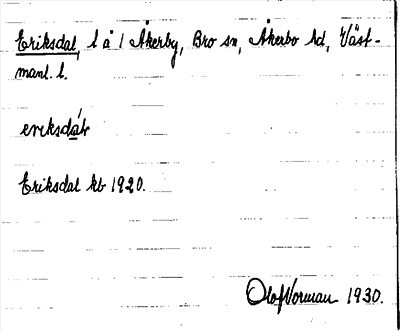 Eriksdal, l å 1 Åkerby, Bro sn, Åkerbo hd, Väst-
manl. l.
Eriksdal kb 1920.
Olof Norman 1930.